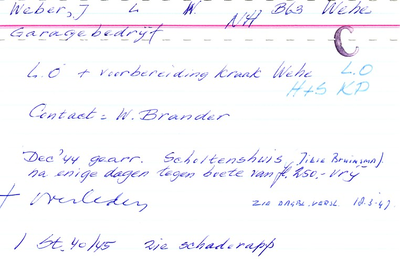 Weber, J L W. NH B63 Wehe
Garagebedrijf C
L.O + voorbereiding kraak Wehe L.O
H+S KP
Contact = W. Brander
Dec '44 gearr. Scholtenshuis, (Tibie Bruinsma)
na enige dagen tegen boete van fl. 250.- vrij
+ overleden zie dagbl. versl. 12.3-47.
/ St. 40/45 zie schaderapp